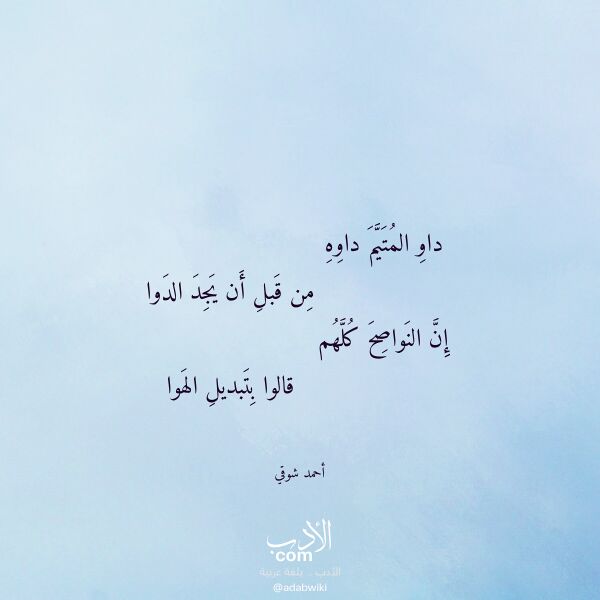 داوِ المُتَيَّمَ داوِهِ
مِن قَبلِ أَن يَجِدَ الدَوا
إِنَّ النَواصِحَ كُلَّهُم
قالوا بِتَبديلِ الهَوا
أحمد شوقي
الأدب
com
الأدب .. بلغة عربية
@adabwiki